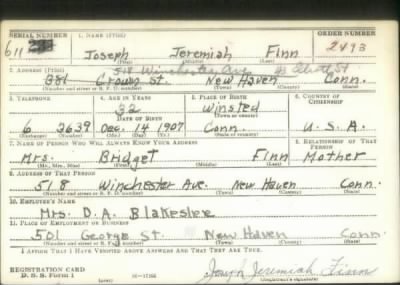 SERIAL NUMBER 1. NAME (PRINT) ORDER NUMBER
611 Joseph Jeremiah Finn 2493
(First) (Middle) (Last)
2. ADDRESS (PRINT) 518 Winchester Ave.
381 Crown St. New Haven Conn.
(Number and street or R. F. D. number) (Town) (County) (State)
3. TELEPHONE 4. AGE IN YEARS 5. PLACE OF BIRTH 6. COUNTRY OF CITIZENSHIP
32 Winsted
DATE OF BIRTH (Town or county)
6 3639 Dec. 14 1907 Conn. U.S.A.
(Exchange) (Number) (Mo.) (Day) (Yr.) (State or country)
7. NAME OF PERSON WHO WILL ALWAYS KNOW YOUR ADDRESS 8. RELATIONSHIP OF THAT PERSON
Mrs. Bridget Finn Mother
(Mr., Mrs., Miss) (First) (Middle) (Last)
9. ADDRESS OF THAT PERSON
518 Winchester Ave. New Haven Conn.
(Number and street or R. F. D. number) (Town) (County) (State)
10. EMPLOYER'S NAME
Mrs. D. A. Blakeslee
11. PLACE OF EMPLOYMENT OR BUSINESS
501 George St. New Haven Conn.
(Number and street or R. F. D. number) (Town) (County) (State)
I AFFIRM THAT I HAVE VERIFIED ABOVE ANSWERS AND THAT THEY ARE TRUE.
REGISTRATION CARD
D. S. S. Form 1 (over) Joseph Jeremiah Finn
(Registrant's signature)